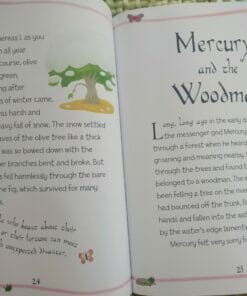 hereas I, as you
n all year
course, olive
green,
ng after
s of winter came.
was harsh and
eavy fall of snow. The snow settled
ves of the olive tree like a thick
was so bowed down with the
er branches bent and broke. But
fell harmlessly through the bare
e fig, which survived for many
who boasts about their
or their fortune can meet
unexpected disaster.
24
Mercury
and the
Woodma
Long, long ago in the early da
the messenger god Mercury
through a forest when he heard
groaning and moaning nearby,
through the trees and found t
belonged to a woodman. The
been felling a tree on the river
had bounced off the trunk, fl
hands and fallen into the wat
by the water's edge lamenti
Mercury felt very sorry f
25